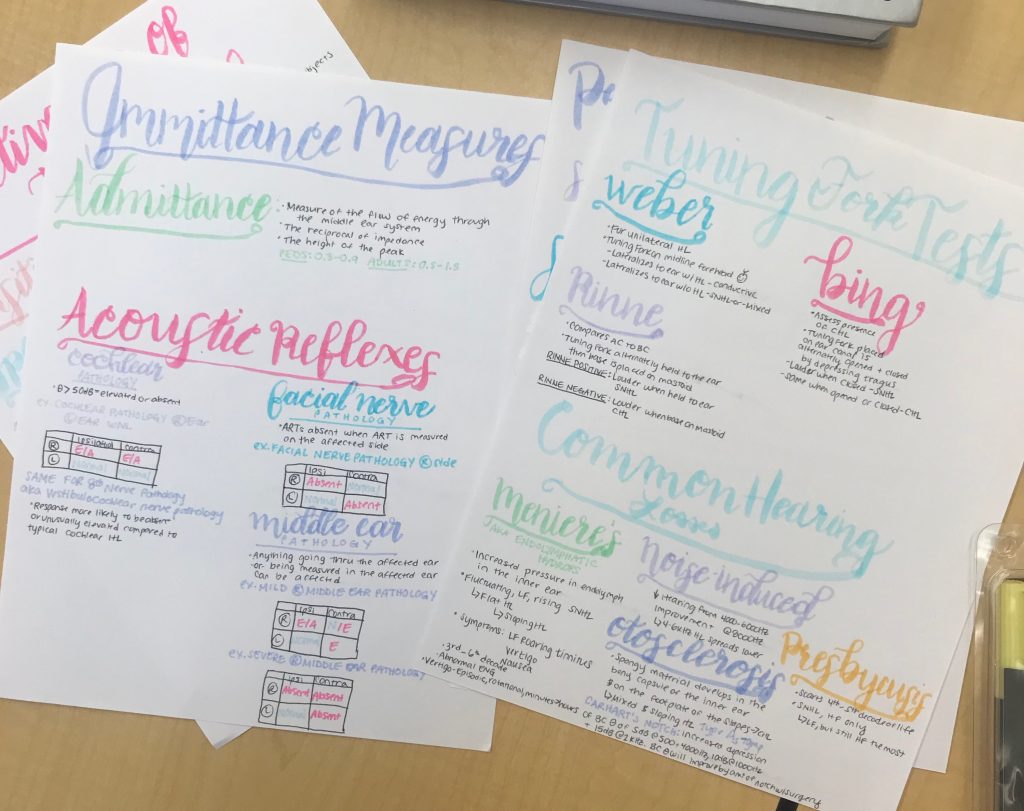 of
bjects
Immittance Measures
Admittance:
· Measure of the flow of energy through
the middle ear system
· The reciprocal of impedance
· The height of the peak
PEDS: 0.3-0.9 ADULTS: 0.3-1.8
Acoustic Reflexes
cochlear
PATHOLOGY
elevated or absent
ex. COCHLEAR PATHOLOGY Ⓡ Ear
Ⓛ EAR WNL
Ipsilateral Contra
Ⓡ E/A E/A
Ⓛ Normal Normal
SAME FOR 8th Nerve Pathology
aka Vestibulocochlear nerve pathology
*Response more likely to be absent
or unusually elevated compared to
typical cochlear HL
facial nerve
PATHOLOGY
· ARTs absent when ART is measured
on the affected side
ex. FACIAL NERVE PATHOLOGY Ⓡ side
Ipsi Contra
Ⓡ Absent Normal
Ⓛ Normal Absent
middle ear
PATHOLOGY
· Anything going thru the affected ear
or being measured in the affected ear
can be affected
ex. MILD Ⓡ MIDDLE EAR PATHOLOGY
Ipsi Contra
Ⓡ E/A N/E
Ⓛ Normal E
ex. SEVERE Ⓡ MIDDLE EAR PATHOLOGY
Ipsi Contra
Ⓡ Absent Absent
Ⓛ Normal Absent
Tuning Fork Tests
Weber
· For unilateral HL
· Tuning Fork on midline forehead
- Lateralizes to ear w/ HL - conductive
- Lateralizes to ear w/o HL - SNHL or Mixed
Rinne
· Compares AC TO BC
· Tuning Fork alternately held to the ear
then base is placed on mastoid
RINNE POSITIVE: Louder when held to ear
SNHL
RINNE NEGATIVE: Louder when base on Mastoid
CHL
bing
· Assess presence
of CHL
· Tuning Fork placed
on ear canal is
alternately opened + closed
by depressing tragus
- Louder when closed - SNHL
- Same when opened or closed - CHL
Common Hearing
Losses
Meniere's
AKA ENDOLYMPHATIC
HYDROPS
· Increased pressure in endolymph
in the inner ear
· Fluctuating, LF, rising SNHL
↳ Flat HL
↳ Sloping HL
· Symptoms: LF Roaring tinnitus
Vertigo
Nausea
· 3rd-6th decade
· Abnormal ENG
· Vertigo-Episodic, rotational, minutes-hours
Noise induced
↓ Hearing from 4000-6000Hz
improvement @ 8000Hz
↳ 4-6kHz HL spreads lower
otosclerosis
· Spongy material develops in the
bony capsule of the inner ear
$ on the footplate of the stapes → CHL
↳ Mixed $ sloping HL Type As Tymp
CARHART'S NOTCH: increased depression
OF BC θ of 5dB @ 500 + 4000Hz, 10dB @ 1000Hz
+ 15dB @ 2kHz. BC θ will improve by amt of notch w/ surgery
Presbycusis
· Starts 4th-5th decade of life
· SNHL, HF only
↳ LF, but still HF the most